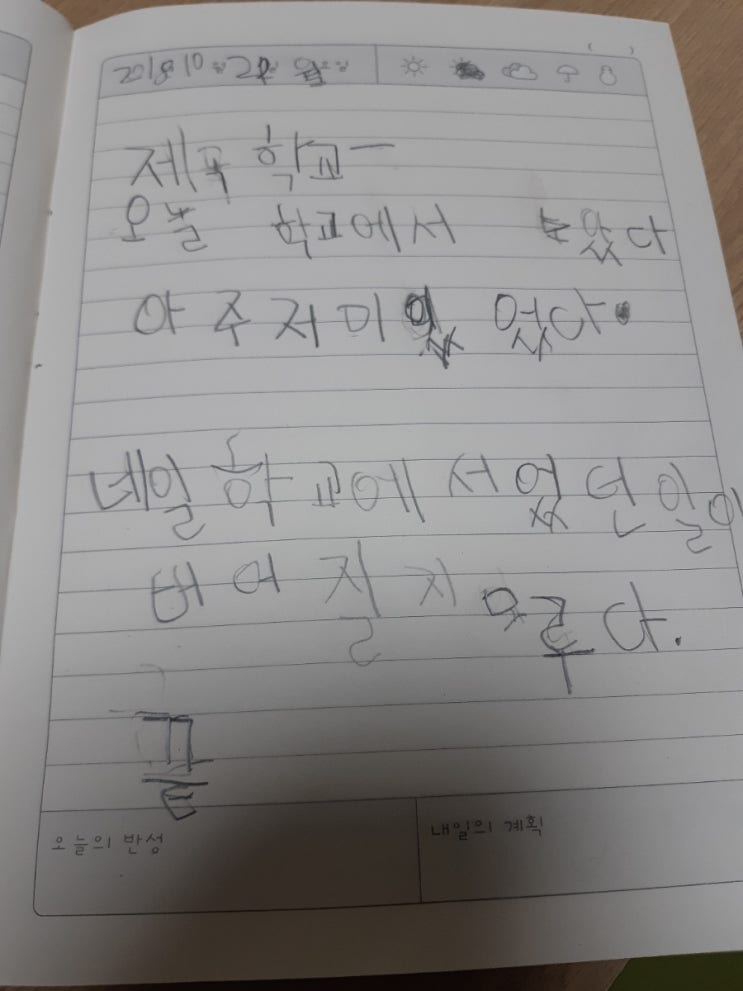 2018 10 월 2 일 월요일
제목 학교
오늘 학교에서 노았다
아주저미있 엇다.
네일 학교에서 었던일이
버어질지 모루다.
끝
오늘의 반성
내일의 계획